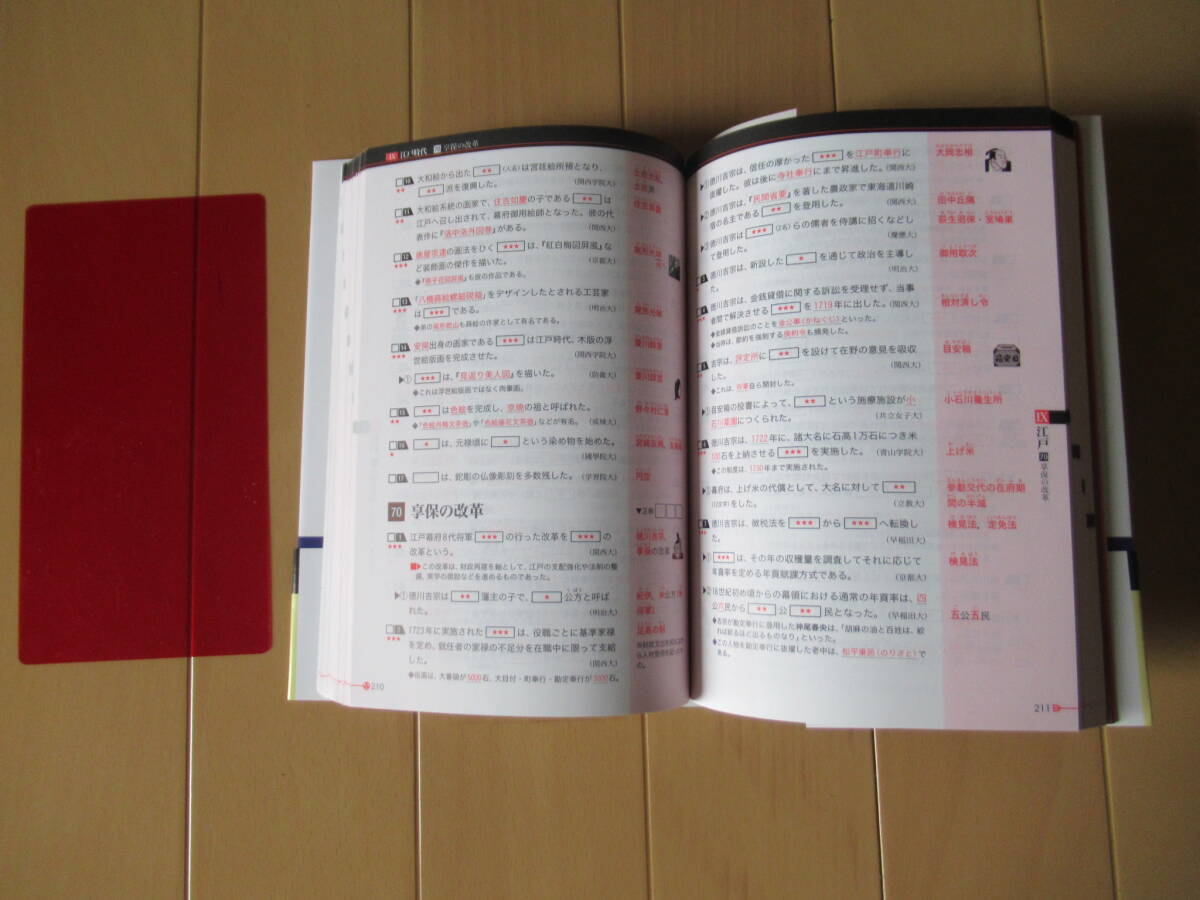 IX 江戸時代 70 享保の改革
10 大和絵から出た ★★ (人名)は宮廷絵所預となり、
★★ 派を復興した。 (関西学院大)
土佐光起、
土佐派
11 大和絵系統の画家で、住吉如慶の子である ★★ は
江戸へ召し出されて、幕府御用絵師となった。彼の代
表作に『洛中洛外図巻』がある。 (関西大)
住吉具慶
12 俵屋宗達の画法をひく ★★★ は、『紅白梅図屏風』な
ど装飾画の傑作を描いた。 (京都大)
◆『燕子花図屏風』も彼の作品である。
尾形光琳
13 「八橋蒔絵螺鈿硯箱」をデザインしたとされる工芸家
は ★★★ である。 (明治大)
◆弟の尾形乾山も蒔絵の作家として有名である。
尾形光琳
14 安房出身の画家である ★★★ は江戸時代、木版の浮
世絵版画を完成させた。 (関西学院大)
菱川師宣
▶① ★★★ は、『見返り美人図』を描いた。 (防衛大)
◆これは浮世絵版画ではなく肉筆画。
菱川師宣
15 ★★ は色絵を完成し、京焼の祖と呼ばれた。 (成城大)
◆『色絵月梅文茶壺』や『色絵藤花文茶壺』などが有名。
野々村仁清
16 ★ は、元禄頃に ★ という染め物を始めた。
(國學院大)
宮崎友禅、友禅染
17 は、鉈彫の仏像彫刻を多数残した。 (学習院大)
円空
70 享保の改革
▼正答
1 江戸幕府8代将軍 ★★★ の行った改革を ★★★ の
改革という。 (関西大)
この改革は、財政再建を軸として、江戸の支配強化や法制の整
備、実学の奨励などを進めるものであった。
徳川吉宗、
享保の改革
▶① 徳川吉宗は ★★ 藩主の子で、 ★ 公方と呼ば
れた。 (明治大)
紀伊、米公方(米
将軍)
2 1723年に実施された ★★★ は、役職ごとに基準家禄
を定め、就任者の家禄の不足分を在職中に限って支給
した。 (関西大)
◆役高は、大番頭が5000石、大目付・町奉行・勘定奉行が3000石。
足高の制
210
▶① 徳川吉宗は、信任の厚かった ★★★ を江戸町奉行に
抜擢した。彼は後に寺社奉行にまで昇進した。 (関西大)
大岡忠相
▶② 徳川吉宗は、『民間省要』を著した農政家で東海道川崎
宿の名主である ★★ を登用した。 (関西大)
田中丘隅
▶③ 徳川吉宗は ★★★ (2名)らの儒者を侍講に招くなどし
て登用した。 (慶應大)
荻生徂徠・室鳩巣
徳川吉宗は、新設した ★ を通じて政治を主導し
た。 (明治大)
御用取次
徳川吉宗は、金銭貸借に関する訴訟を受理せず、当事
者間で解決させる ★★★ を1719年に出した。 (関西大)
◆金銭貸借訴訟のことを金公事(かねくじ)といった。
◆幕府は、節約を強制する倹約令も頻発した。
相対済し令
吉宗は、評定所に ★★ を設けて在野の意見を吸収
した。
◆これは、将軍自ら開封した。
目安箱
▶① 目安箱の投書によって、 ★★ という施療施設が小
石川薬園につくられた。 (共立女子大)
小石川養生所
徳川吉宗は、1722年に、諸大名に石高1万石につき米
100石を上納させる ★★★ を実施した。 (青山学院大)
◆この制度は、1730年まで実施された。
上げ米
幕府は、上げ米の代償として、大名に対して ★★
(12文字)をした。 (立教大)
参勤交代の在府期
間の半減
徳川吉宗は、徴税法を ★★★ から ★★★ へ転換し
た。 (早稲田大)
検見法、定免法
▶① ★★★ は、その年の収穫量を調査してそれに応じて
年貢率を定める年貢賦課方式である。 (京都大)
検見法
▶② 18世紀初め頃からの幕領における通常の年貢率は、四
公六民から ★★ 公 ★★ 民となった。 (早稲田大)
◆吉宗が勘定奉行に登用した神尾春央は、「胡麻の油と百姓は、絞
れば絞るほど出るものなり」といった。
◆この人物を勘定奉行に抜擢した老中は、松平乗邑(のりさと)で
ある。
五公五民
IX 江戸 70 享保の改革
211